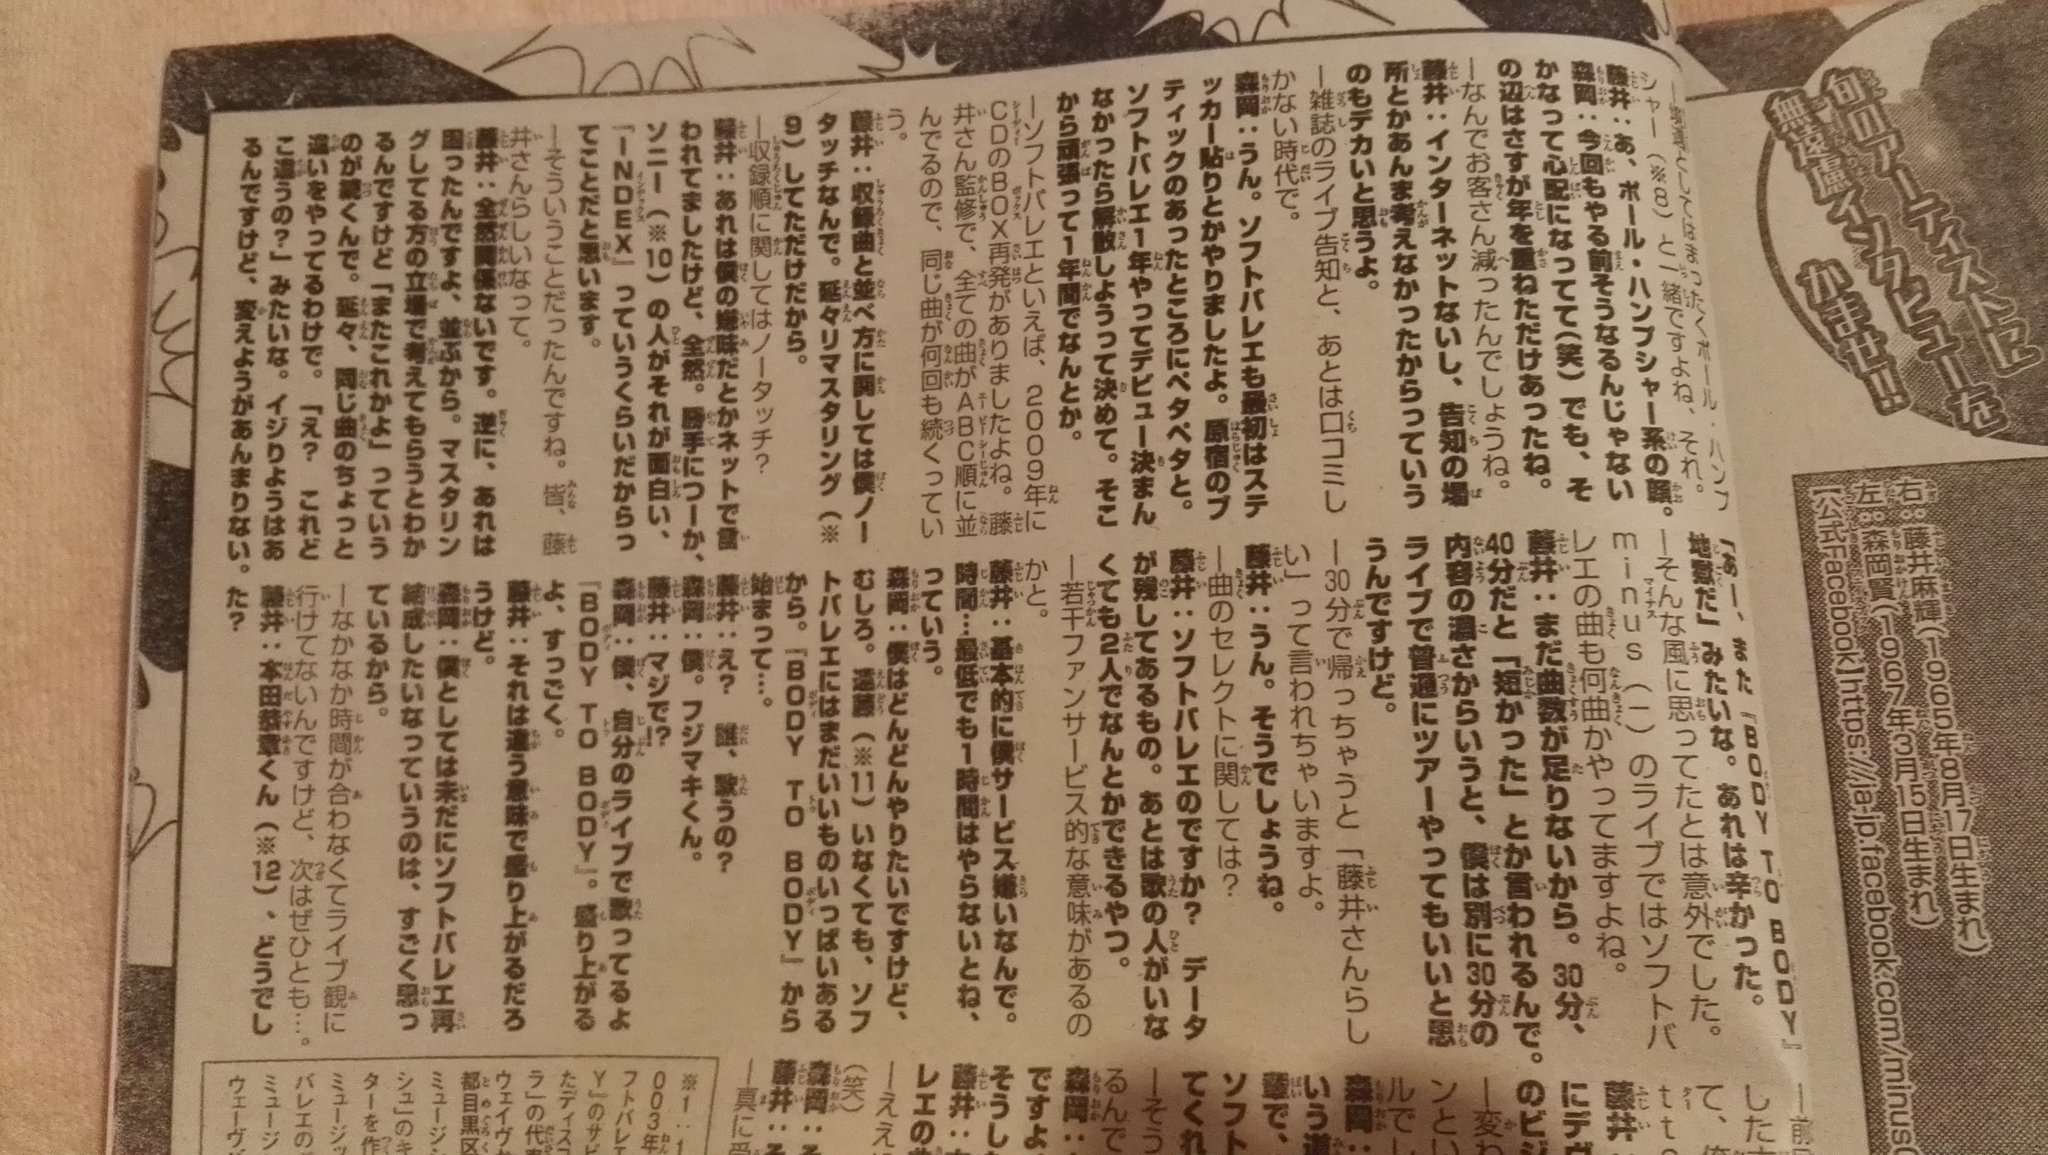 旬のアーティストに
無遠慮インタビューを
かませ!!
右:藤井麻輝(1965年8月17日生まれ)
左:森岡賢(1967年3月15日生まれ)
【公式Facebook】https://ja-jp.facebook.com/minus
シャー(※8)と一緒ですよね、それ。
藤井:あ、ポール・ハンプシャー系の顔。
森岡:今回もやる前そうなるんじゃない
かなって心配になってて(笑)でも、そ
の辺はさすが年を重ねただけあったね。
―なんでお客さん減ったんでしょうね。
藤井:インターネットないし、告知の場
所とかあんま考えなかったからっていう
のもデカいと思うよ。
―雑誌のライブ告知と、あとは口コミし
かない時代で。
森岡:うん。ソフトバレエも最初はステ
ッカー貼りとかやりましたよ。原宿のブ
ティックのあったところにペタペタと。
ソフトバレエ1年やってデビュー決まん
なかったら解散しようって決めて。そこ
から頑張って1年間でなんとか。
―ソフトバレエといえば、2009年に
CDのBOX再発がありましたよね。藤
井さん監修で、全ての曲がABC順に並
んでるので、同じ曲が何回も続くってい
う。
藤井:収録曲と並べ方に関しては僕ノー
タッチなんで。延々リマスタリング(※
9)してただけだから。
―収録順に関してはノータッチ?
藤井:あれは僕の嫌味だとかネットで言
われてましたけど、全然。勝手につーか、
ソニー(※10)の人がそれが面白い、
『INDEX』っていうくらいだからっ
てことだと思います。
―そういうことだったんですね。皆、藤
井さんらしいなって。
藤井:全然関係ないです。逆に、あれは
困ったんですよ、並ぶから。マスタリン
グしてる方の立場で考えてもらうとわか
るんですけど「またこれかよ」っていう
のが続くんで。延々、同じ曲のちょっと
違いをやってるわけで。「え? これど
こ違うの?」みたいな。イジりようはあ
るんですけど、変えようがあんまりない。
「あー、また『BODY TO BODY』
地獄だ」みたいな。あれは辛かった。
―そんな風に思ってたとは意外でした。
minus(-)のライブではソフトバ
レエの曲も何曲かやってますよね。
藤井:まだ曲数が足りないから。30分、
40分だと「短かった」とか言われるんで。
内容の濃さからいうと、僕は別に30分の
ライブで普通にツアーやってもいいと思
うんですけど。
―30分で帰っちゃうと「藤井さんらし
い」って言われちゃいますよ。
藤井:うん。そうでしょうね。
―曲のセレクトに関しては?
藤井:ソフトバレエのですか? データ
が残してあるもの。あとは歌の人がいな
くても2人でなんとかできるやつ。
―若干ファンサービス的な意味があるの
かと。
藤井:基本的に僕サービス嫌いなんで。
時間…最低でも1時間はやらないとね、
っていう。
森岡:僕はどんどんやりたいですけど、
むしろ。遠藤(※11)いなくても、ソフ
トバレエにはまだいいものいっぱいある
から。『BODY TO BODY』から
始まって…。
藤井:え? 誰、歌うの?
森岡:僕。フジマキくん。
藤井:マジで!?
森岡:僕、自分のライブで歌ってるよ
『BODY TO BODY』。盛り上がる
よ、すっごく。
藤井:それは違う意味で盛り上がるだろ
うけど。
森岡:僕としては未だにソフトバレエ再
結成したいなっていうのは、すごく思っ
ているから。
―なかなか時間が合わなくてライブ観に
行けてないんですけど、次はぜひとも…。
藤井:本田恭章くん(※12)、どうでし
た?